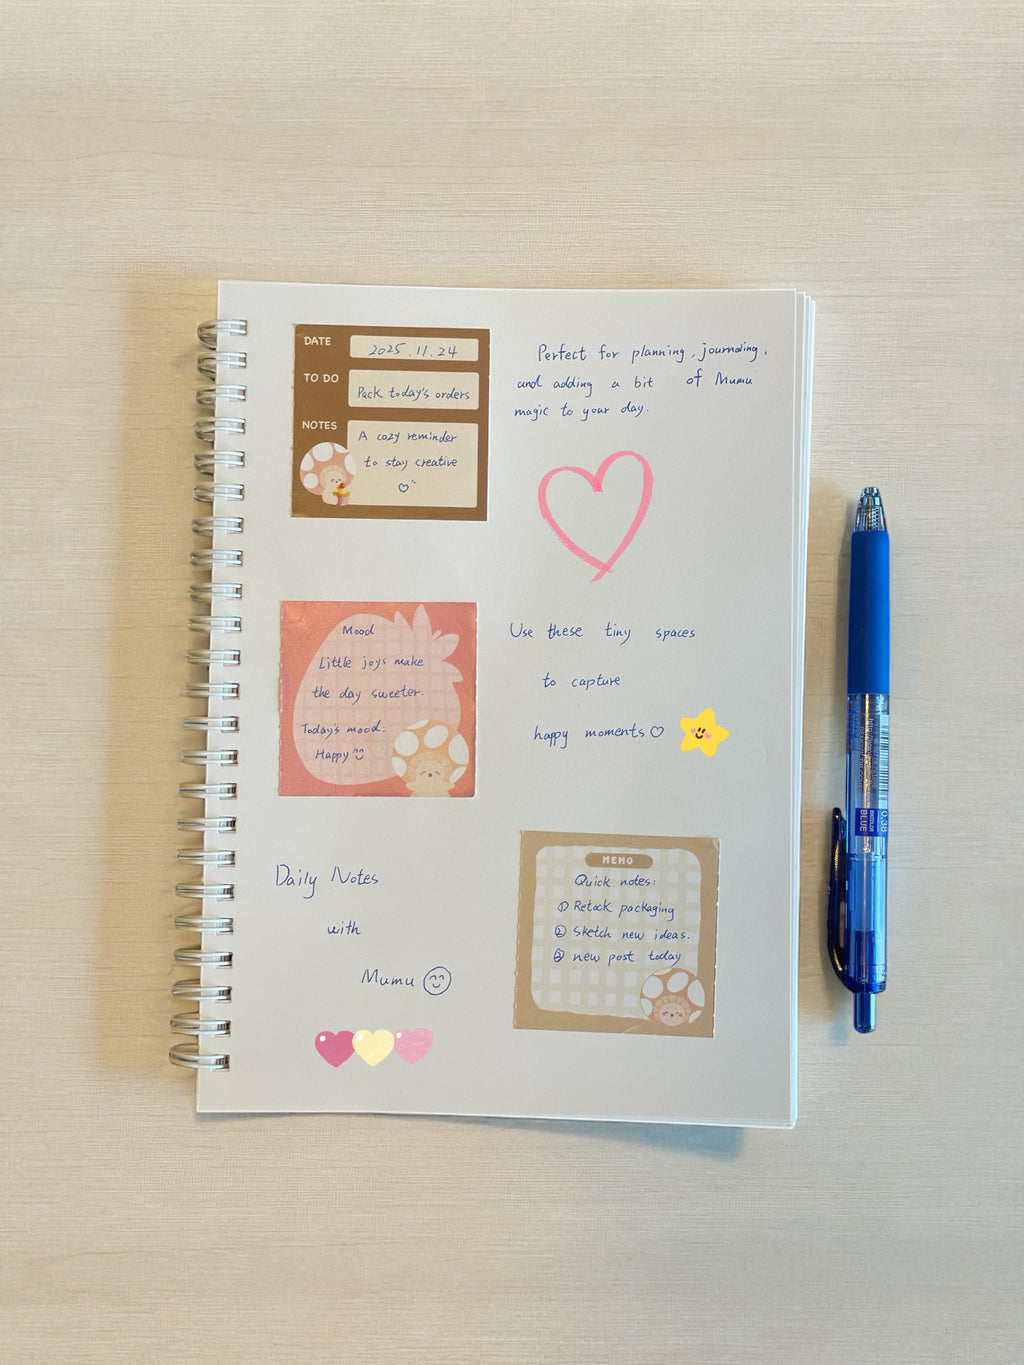 DATE
2025.11.24
TO DO
Pack today's orders
NOTES
A cozy reminder
to stay creative
Perfect for planning, journaling,
and adding a bit of Mumu
magic to your day.
Mood
Little joys make
the day sweeter.
Today's mood:
Happy
Use these tiny spaces
to capture
happy moments
Daily Notes
with
Mumu
MEMO
Quick notes:
① Retock packaging
② Sketch new ideas.
③ new post today
0.38
BLUE